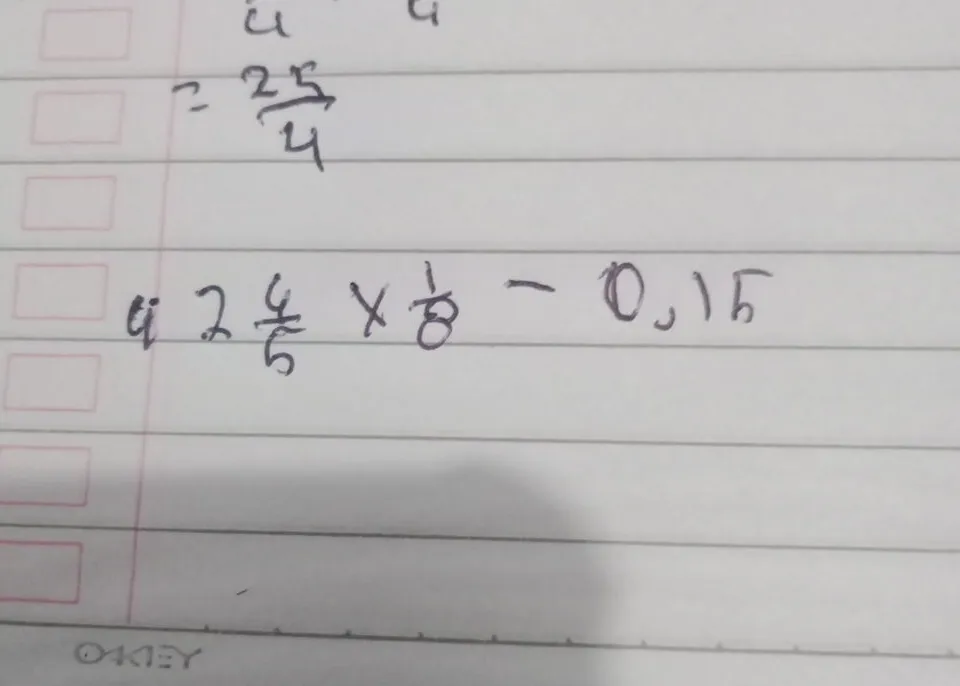 4 4
= 25/4
4 2 4/5 × 1/8 - 0,15
OKEY